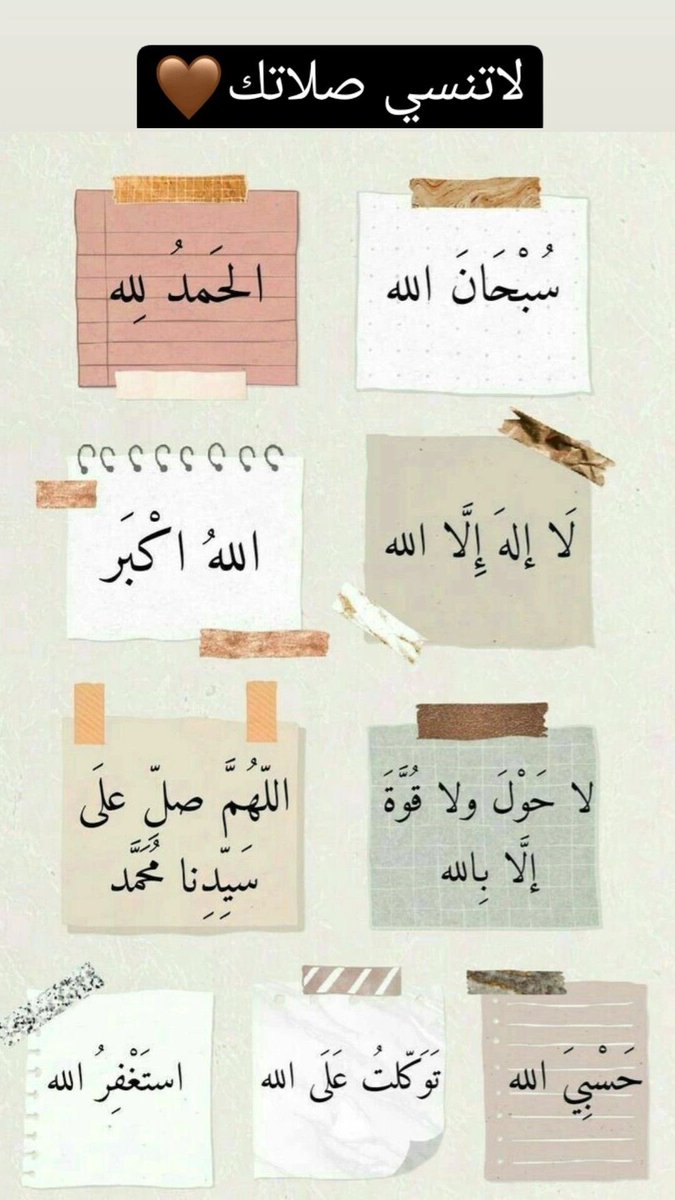 لاتنسي صلاتك🤎
سُبْحَانَ الله
الحَمدُ لِله
لَا إلهَ إِلَّا الله
اللهُ اكْبَر
لا حَوْلَ ولا قُوَّةَ
إلَّا بِالله
اللّهُمَّ صلِّ علَى
سَيِّدِنا مُحَمَّد
حَسْبِيَ الله
تَوَكّلتُ عَلَى الله
استَغْفِرُ الله